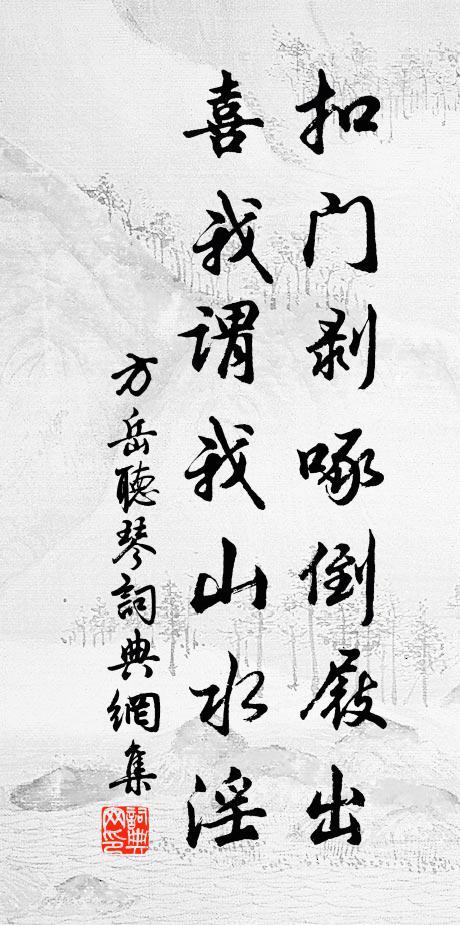 扣门剥啄倒屐出
喜我谓我山水淫
方岳聽琴詞典網集
詞典網印